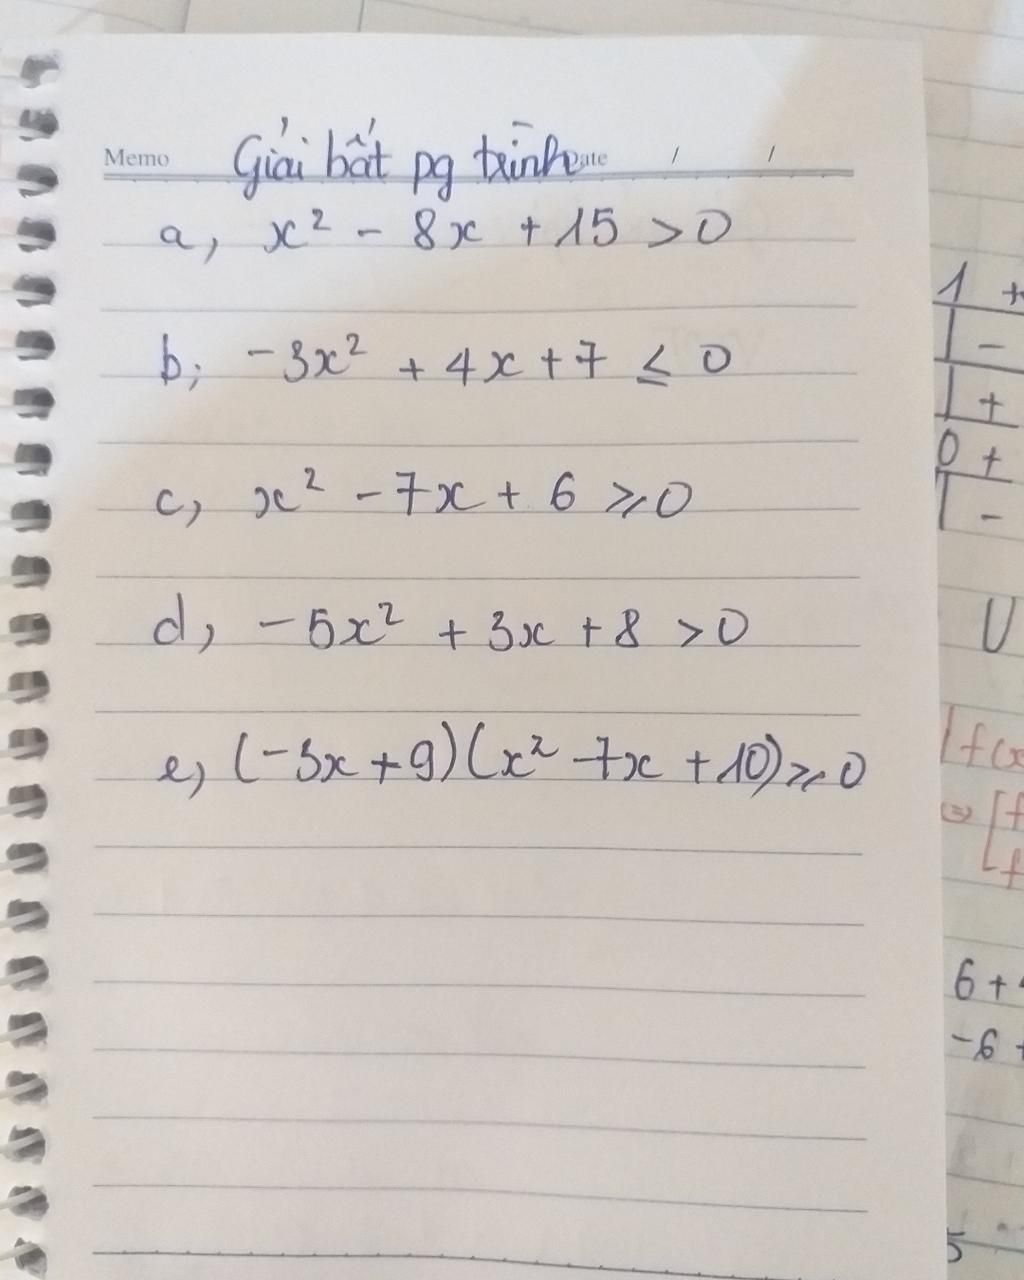 Memo Giải bất pg trình ate / /
a, x² - 8x + 15 > 0
b; -3x² + 4x + 7 ≤ 0
c, x² - 7x + 6 ⩾ 0
d, -5x² + 3x + 8 > 0
e, (-3x + 9)(x² - 7x + 10) ⩾ 0
1 +
| -
| +
0 +
| -
U
f(x
⇔ [ f
f
6 +
-6 +
5